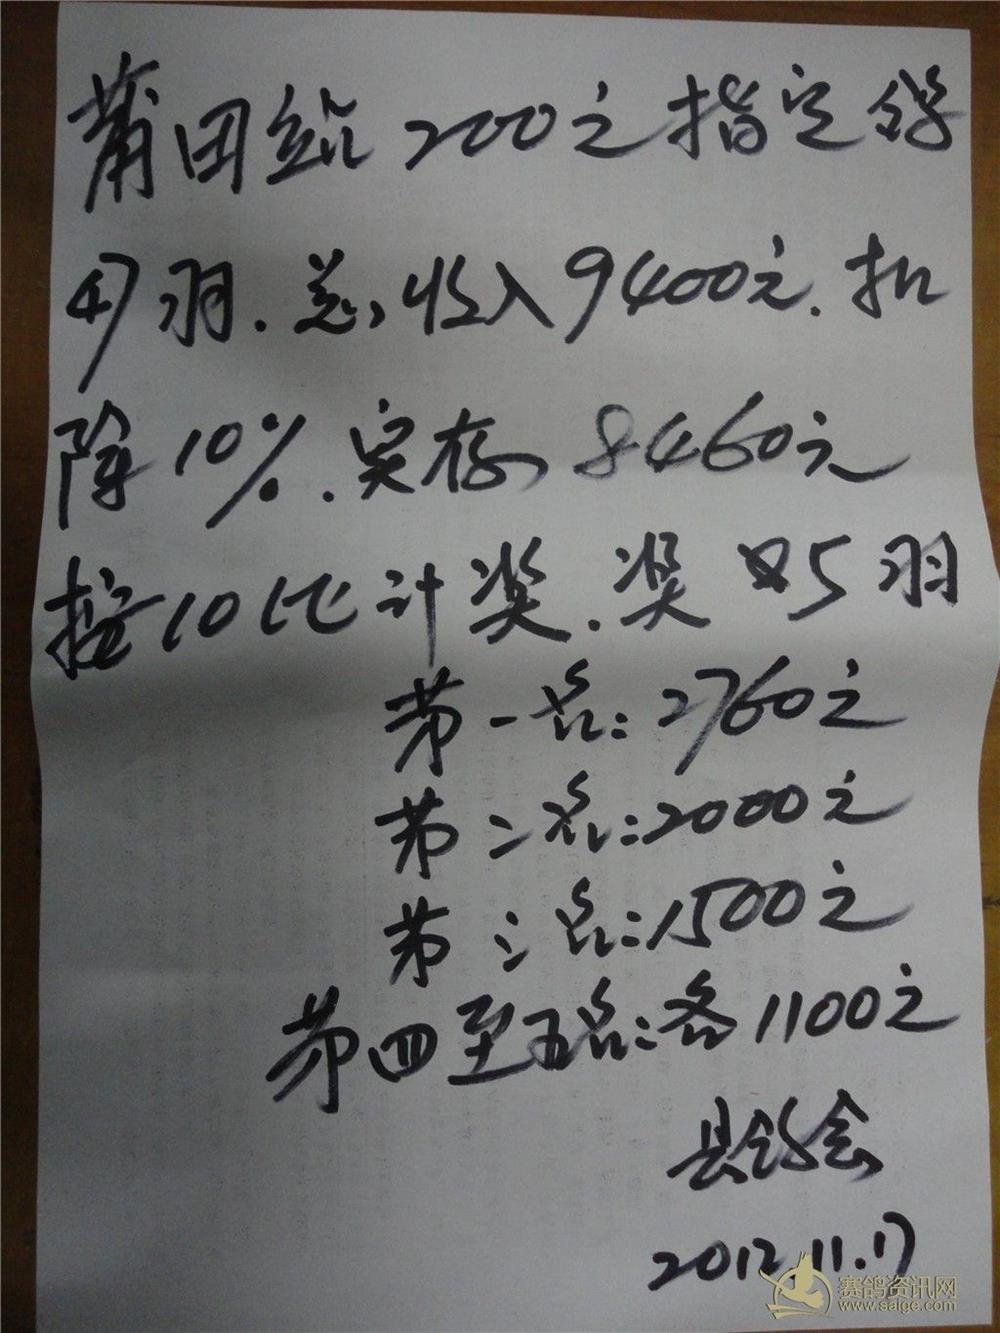 莆田站200元指定鸽
47羽.总收入9400元.扣
除10%.实存8460元
按10比计奖.奖5羽
第一名:2760元
第二名:2000元
第三名:1500元
第四至五名:各1100元
县鸽会
2012.11.17
赛鸽资讯网
www.saige.com